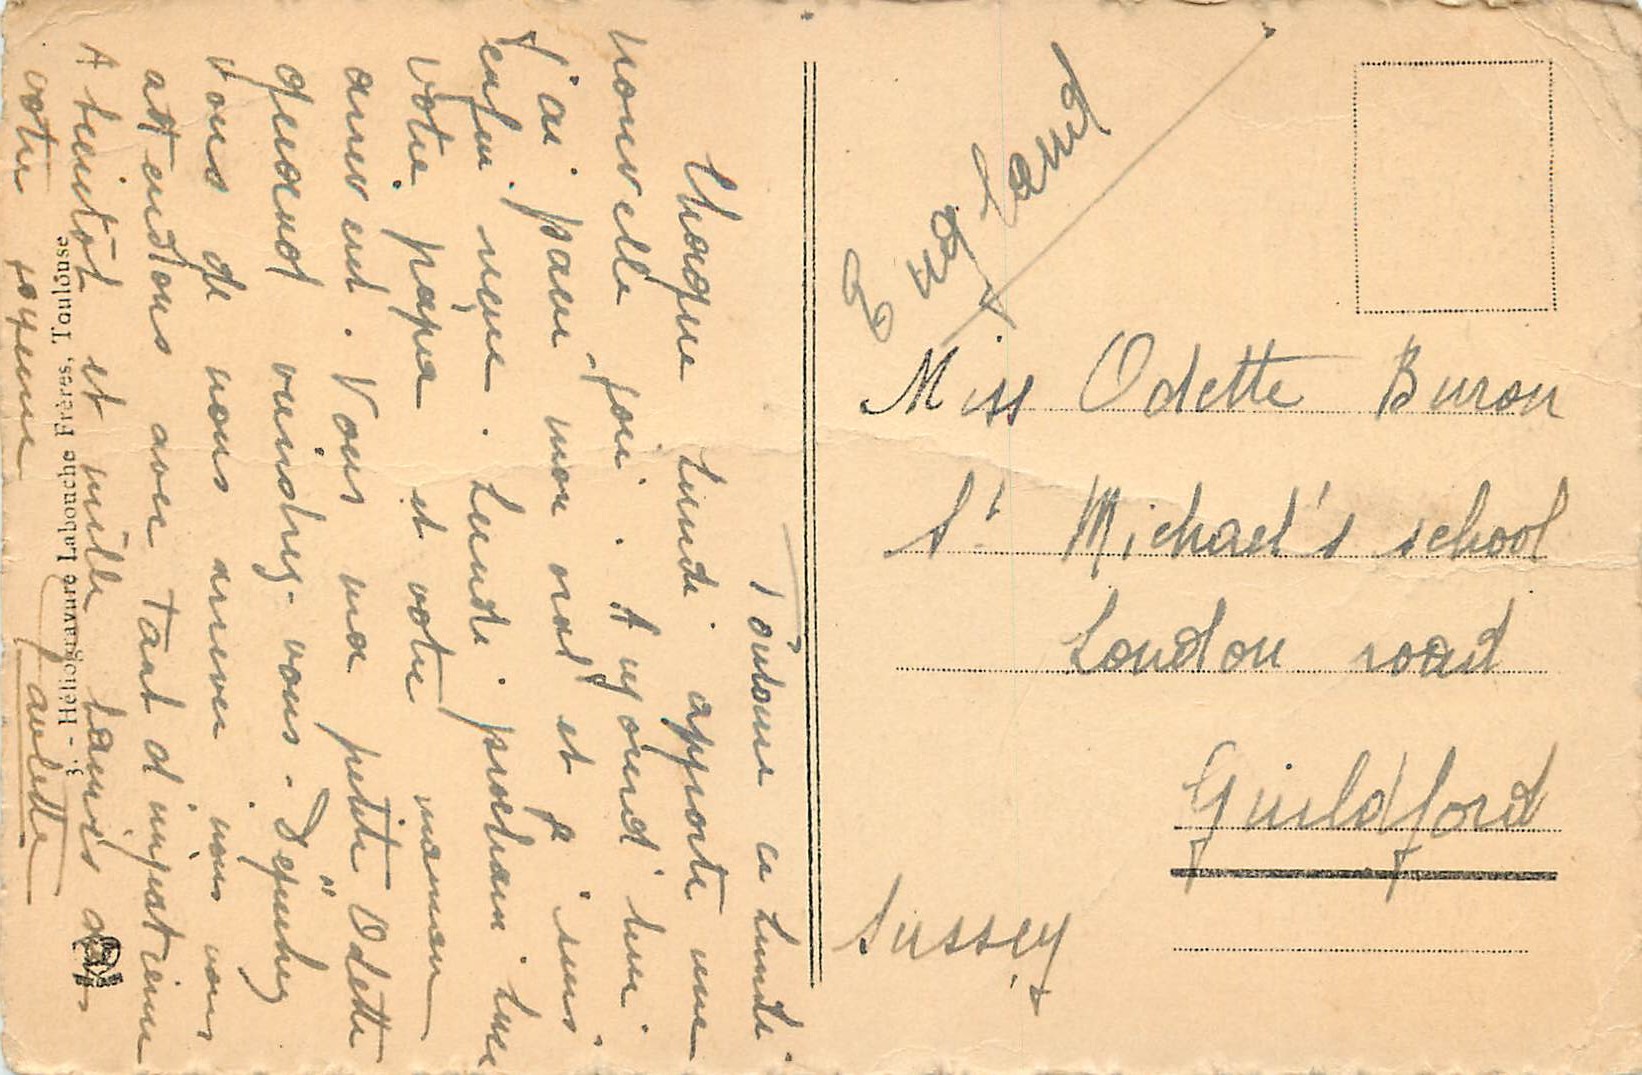 Toulouse ce Lundi
Chaque Lundi apporte une
nouvelle joie. Aujourd'hui
J'ai passé mon oral et je suis
enfin reçue. Lundi prochain Luce
votre papa et votre maman
arrivent. Vous ma petite Odette
quand viendrez-vous. Dépêchez
vous de nous arriver nous vous
attendons avec tant d'impatience
A bientôt et mille baisers de
votre
Paulette
3. - Héliogravure Labouche Frères, Toulouse
England
Miss Odette Buron
St Michael's school
London road
Guildford
Sussex